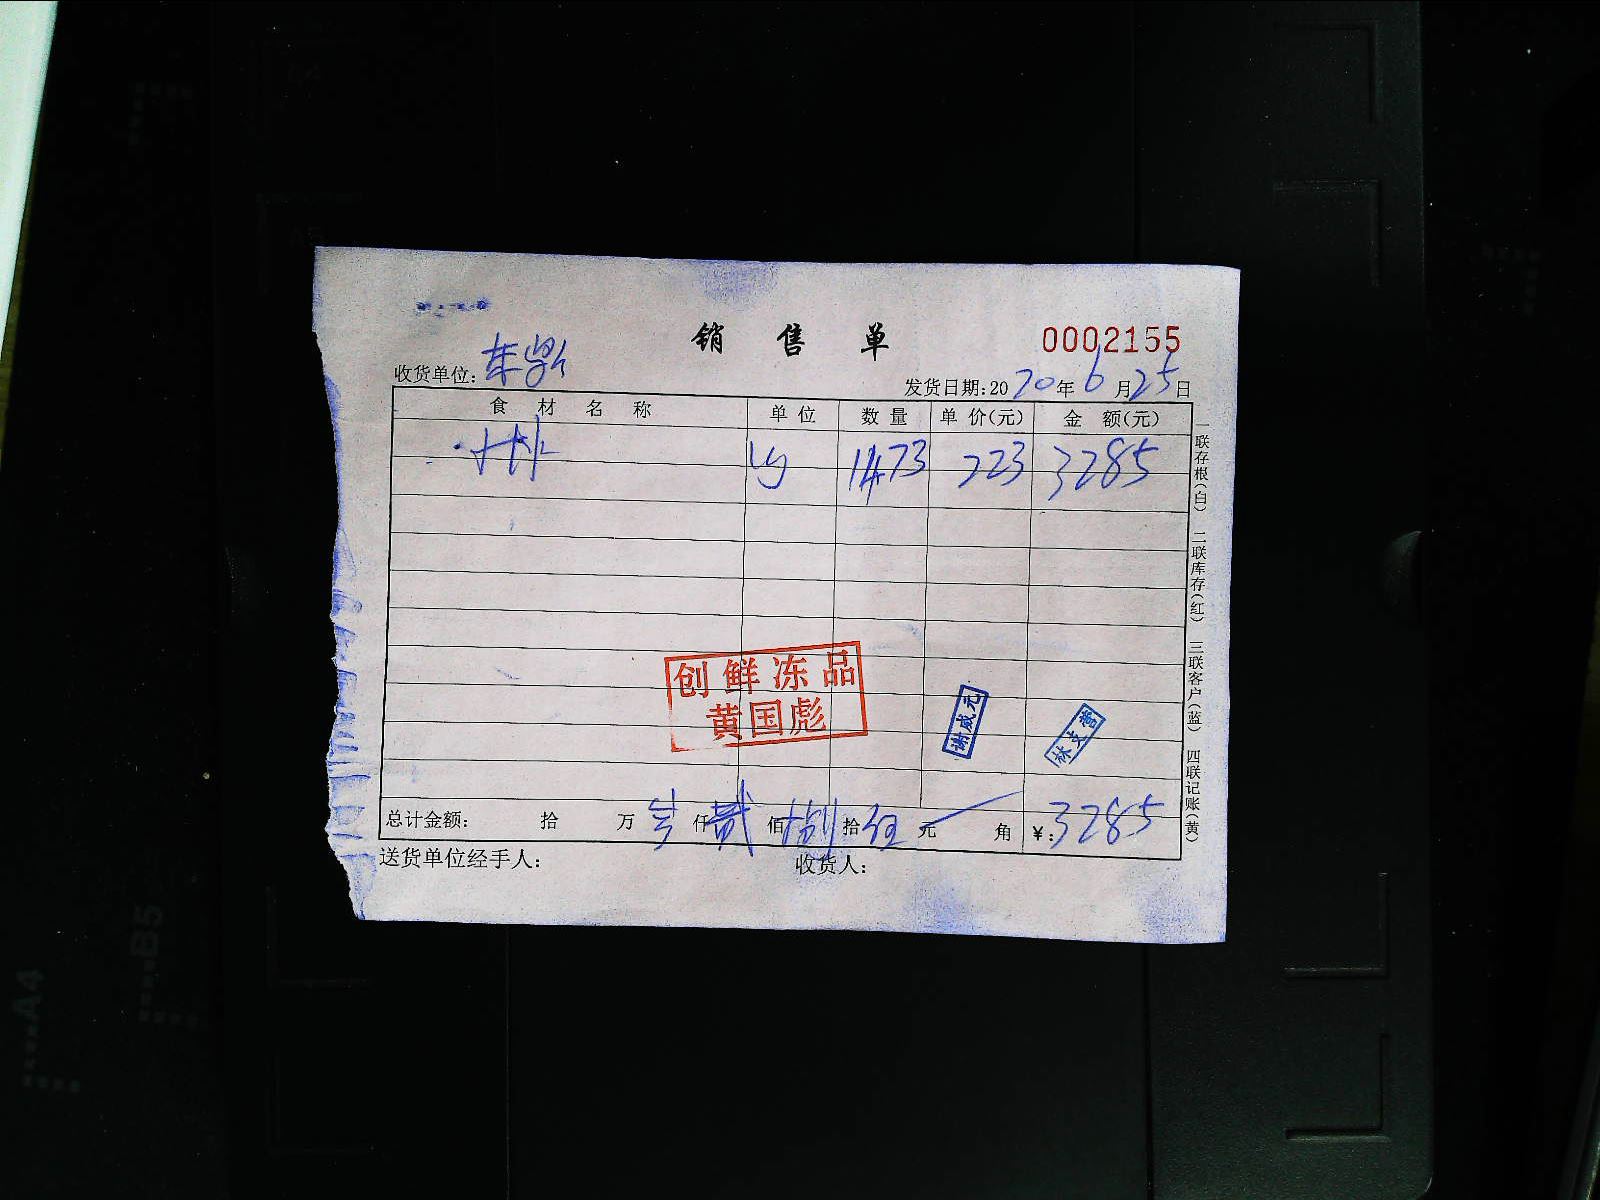 销 售 单
0002155
收货单位:
发货日期:2020年6月25日
食 材 名 称 单 位 数 量 单 价(元) 金 额(元)
小排 1473 223 3285
创鲜冻品
黄国彪
谢成元
总计金额: 拾 万 叁 仟 贰 佰 捌 拾 伍 元 角 ¥:3285
送货单位经手人: 收货人:
一联存根(白) 二联库存(红) 三联客户(蓝) 四联记账(黄)
A4
B5